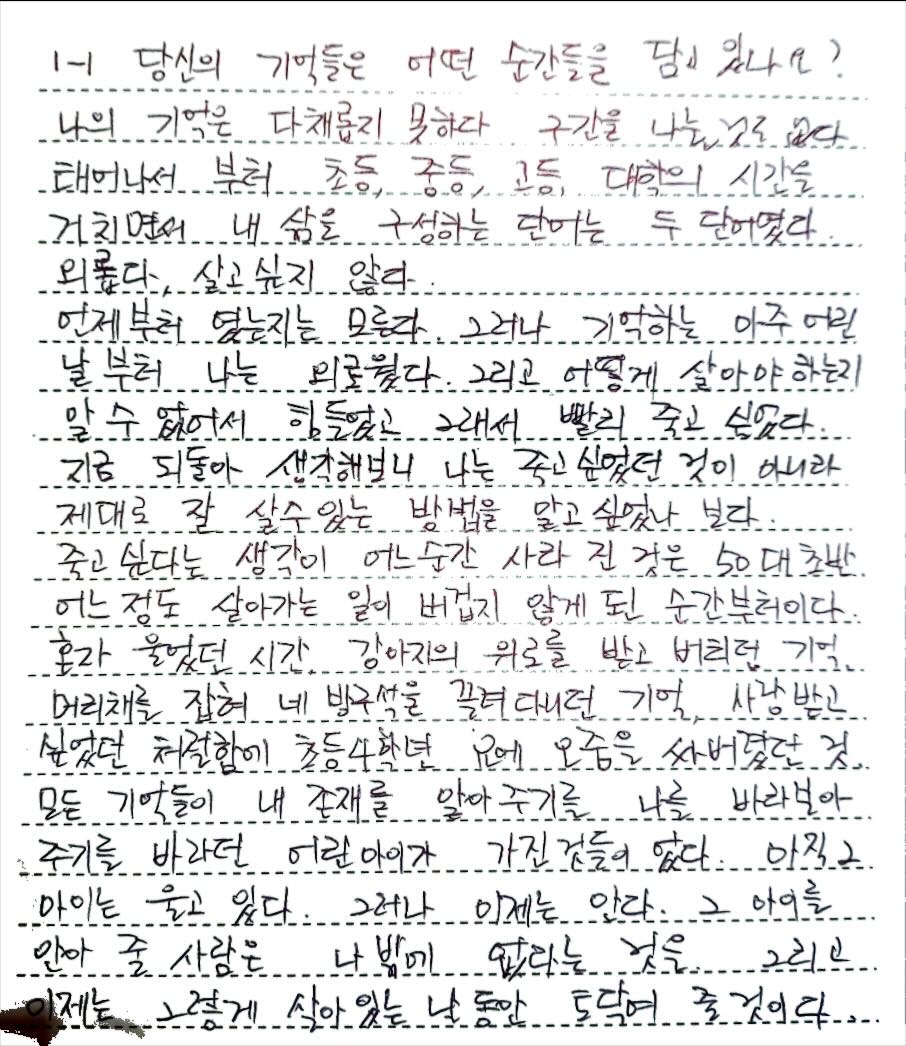 1-1 당신의 기억들은 어떤 순간들을 담고 있나요?
나의 기억은 다채롭지 못하다. 구간을 나눌 것도 없다
태어나서 부터 초등, 중등, 고등, 대학의 시간을
거치면서 내 삶을 구성하는 단어는 두 단어였다.
외롭다, 살고싶지 않다.
언제부터 였는지는 모른다. 그러나 기억하는 아주 어린
날부터 나는 외로웠다. 그리고 어떻게 살아야하는지
알 수 없어서 힘들었고 그래서 빨리 죽고 싶었다.
지금 되돌아 생각해보니 나는 죽고싶었던 것이 아니라
제대로 잘 살수있는 방법을 알고싶었나 보다.
죽고싶다는 생각이 어느순간 사라 진 것은 50대초반.
어느정도 살아가는 일이 버겁지 않게 된 순간부터이다.
혼자 울었던 시간, 강아지의 위로를 받고 버티던 기억,
머리채를 잡혀 네 방구석을 끌려다니던 기억, 사랑받고
싶었던 처절함에 초등4학년 요에 오줌을 싸버렸던 것,
모든 기억들이 내 존재를 알아주기를 나를 바라보아
주기를 바라던 어린아이가 가진것들이 었다. 아직 그
아이는 울고 있다. 그러나 이제는 안다. 그 아이를
안아 줄 사람은 나 밖에 없다는 것을. 그리고
이제는 그렇게 살아있는 날 동안 토닥여 줄 것이다.